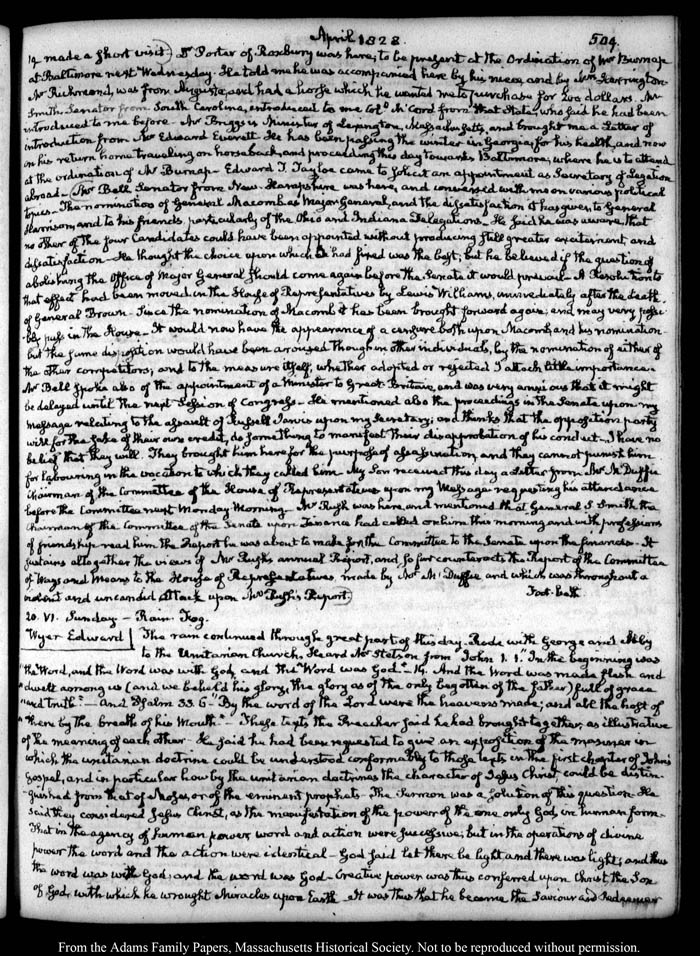 April 1828.
504.
19 made a short visit) Dr Porter of Roxbury was here; to be present at the Ordination of Mr Burnap
at Baltimore next Wednesday. He told me he was accompanied here by his niece, and by Mrs Kerrington
Mr Richmond, was from Augusta, and had a horse which he wanted me to purchase for 200 dollars. Mr
Smith, Senator from South Carolina, introduced to me Colo. McCord from that State, who said he had been
introduced to me before. Mr Briggs is Minister of Lexington, Massachusetts, and brought me a Letter of
introduction from Mr Edward Everett. He has been passing the winter in Georgia for his health, and now
on his return home traveling on horseback, and proceeding this day towards Baltimore, where he is to attend
at the ordination of Mr Burnap. Edward T. Tayloe came to solicit an appointment as Secretary of Legation
abroad. (Mr Bell Senator from New-Hampshire was here, and conversed with me on various political
topics. The nomination of General Macomb as Major General, and the dissatisfaction it has given to General
Harrison, and to his friends, particularly of the Ohio and Indiana Delegations. He said he was aware, that
no other of the four Candidates could have been appointed without producing still greater excitement, and
dissatisfaction. He thought the choice upon which I had fixed was the best; but he believed if the question of
abolishing the Office of Major General should come again before the Senate it would prevail. A Resolution to
that effect had been moved in the House of Representatives by Lewis Williams, immediately after the death
of General Brown. Since the nomination of Macomb it has been brought forward again, and may very possi-
bly pass in the House. It would now have the appearance of a censure both upon Macomb and his nomination
but the same disposition would have been aroused though in other individuals, by the nomination of either of
the other competitors; and to the measure itself, whether adopted or rejected I attach little importance.
Mr Bell spoke also of the appointment of a Minister to Great Britain, and was very anxious that it might
be delayed until the next Session of Congress. He mentioned also the proceedings in the Senate upon my
Message relating to the assault of Russell Jarvis upon my Secretary; and thinks that the opposition party
will for the sake of their own credit, do something to manifest their disapprobation of his conduct. I have no
belief that they will. They brought him here for the purpose of assassination, and they cannot punish him
for labouring in the vocation to which they called him. My Son received this day a Letter from Mr McDuffie
Chairman of the Committee of the House of Representatives upon my Message requesting his attendance
before the Committee next Monday Morning. Mr Rush was here, and mentioned that General S. Smith, the
Chairman of the Committee of the Senate upon Finance had called on him this morning and with professions
of friendship read him the Report he was about to make from the Committee to the Senate upon the finances. It
sustains altogether the views of Mr Rush's annual Report, and so far counteracts the Report of the Committee
of Ways and Means to the House of Representatives, made by Mr McDuffie and which was throughout a
violent and uncandid attack upon Mr Rush's Report.) Foot-bath
20. VI. Sunday - Rain. Fog.
Wyer Edward The rain continued through great part of this day. Rode with George and Abby
to the Unitarian Church. Heard Mr Stetson from John 1. 1. "In the beginning was
"the Word, and the Word was with God, and the Word was God." 14. And the Word was made flesh and
"dwelt among us (and we beheld his glory, the glory as of the only begotten of the father) full of grace
"and truth." - And Psalm 33. 6. "By the word of the Lord were the heavens made; and all the host of
"them by the breath of his Mouth." These texts, the Preacher said he had brought together, as illustrative
of the meaning of each other. He said he had been requested to give an exposition of the manner in
which the unitarian doctrine could be understood conformably to those texts in the first chapter of John's
Gospel, and in particular how by the unitarian doctrines the character of Jesus Christ could be distin-
guished from that of Moses, or of the eminent prophets. The Sermon was a solution of this question. He
said they considered Jesus Christ, as the manifestation of the power of the one only God, in human form.
That in the agency of human power, word and action were successive; but in the operations of divine
power the word and the action were identical. God said let there be light and there was light; and thus
the word was with God; and the word was God. Creative power was thus conferred upon Christ the Son
of God, with which he wrought Miracles upon Earth. It was thus that he became the Saviour and Redeemer
From the Adams Family Papers, Massachusetts Historical Society. Not to be reproduced without permission.